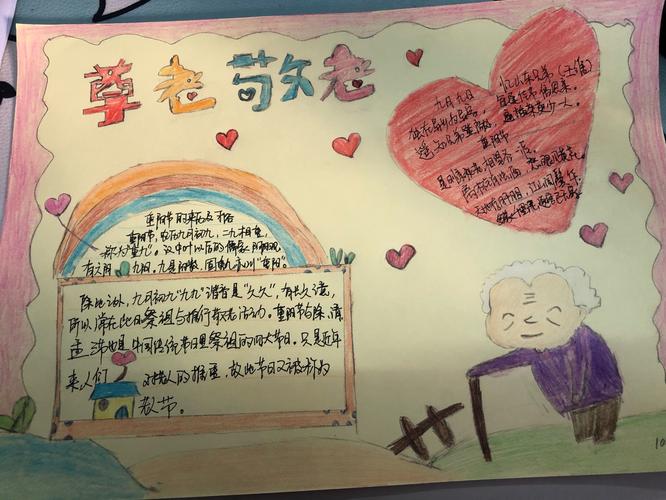 尊老敬老
忆山东兄弟（王维）
独在异乡为异客，
每逢佳节倍思亲。
遥知兄弟登高处，
遍插茱萸少一人。
重阳节
重阳节的来历及习俗
重阳节，农历九月初九，二九相重，
称为"重九"。汉中叶以后的儒家阴阳观，
有六阴九阳。九是阳数，固重九亦叫"重阳"
除此之外，九月初九"九九"谐音是"久久"，有长久之意，
所以常在此日祭祖与推行敬老活动。重阳节与除、清、
盂三节也是中国传统节日里祭祖的四大节日。只是近年
来人们 对老人的推重，故此节日又被称为
老人节。
10